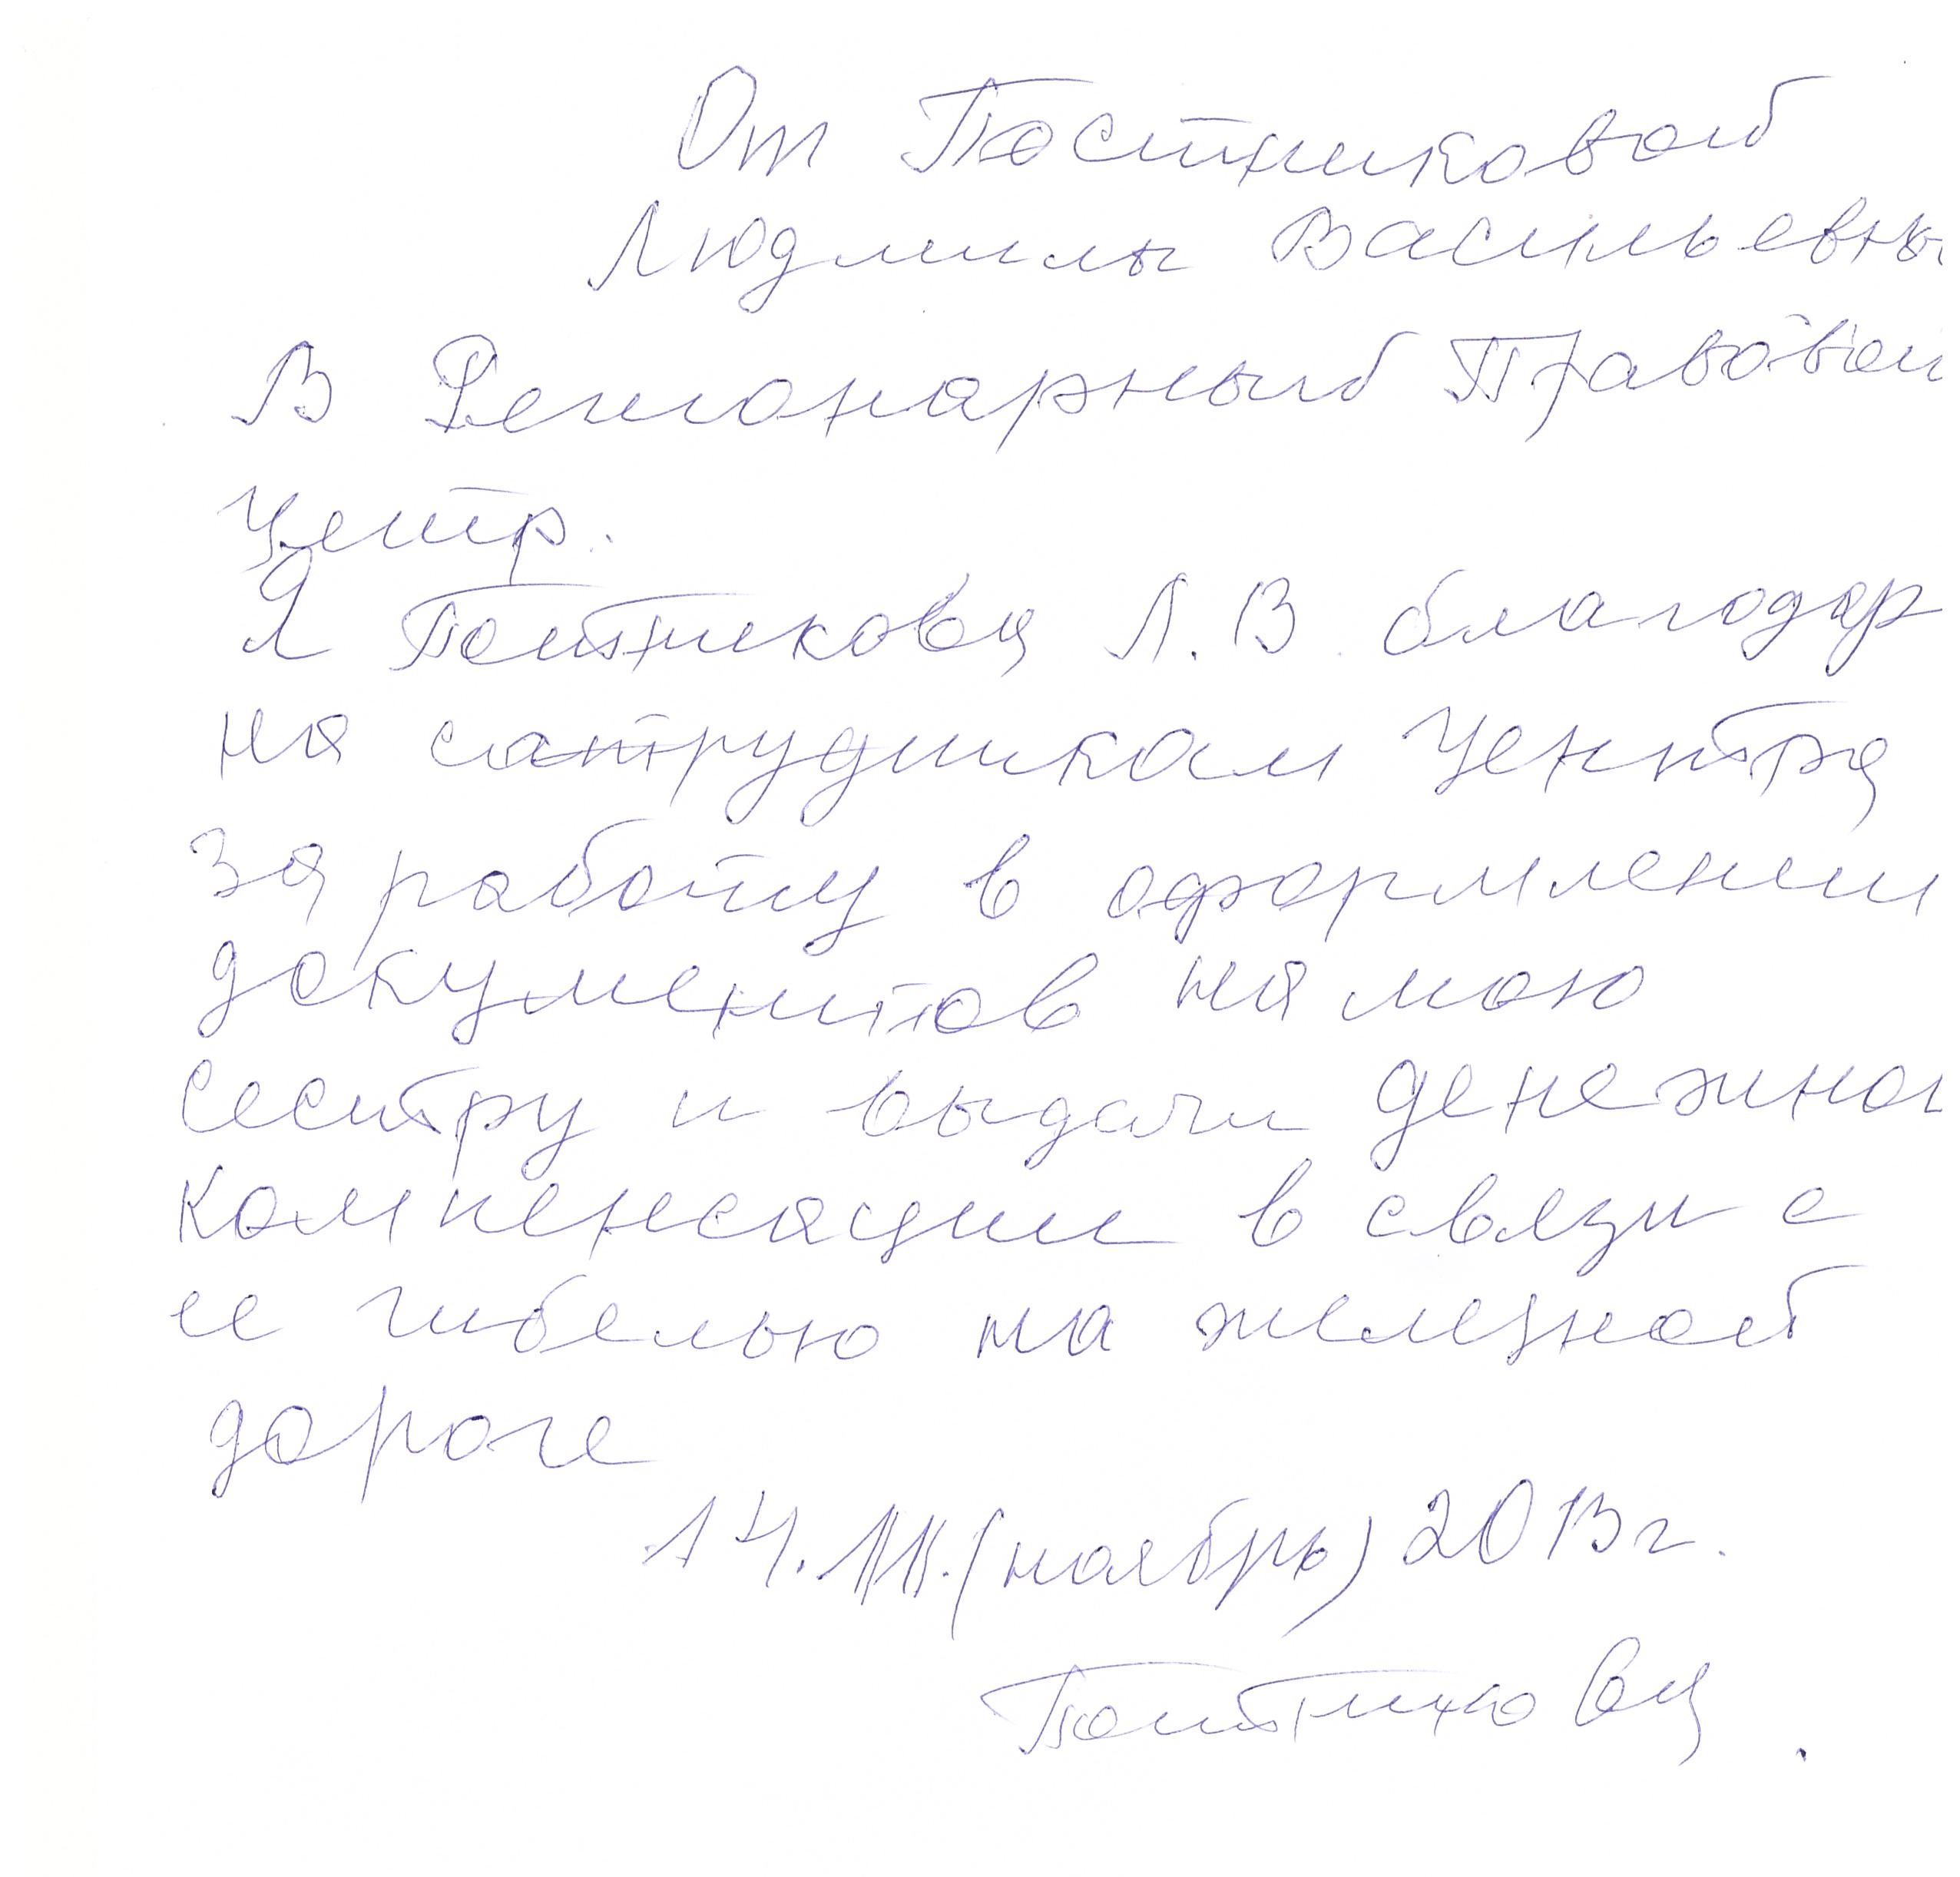 От Постниковой
Людмилы Васильевны
В Регионарный Правовой
Центр.
Я Постникова Л.В. благодар
на сотрудникам Ценнтра
за работу в оформлении
документов на мою
сестру и выдачи денежной
компенсации в связи с
ее гибелью на железной
дороге
14.11.(ноябрь) 2013г.
Постникова.